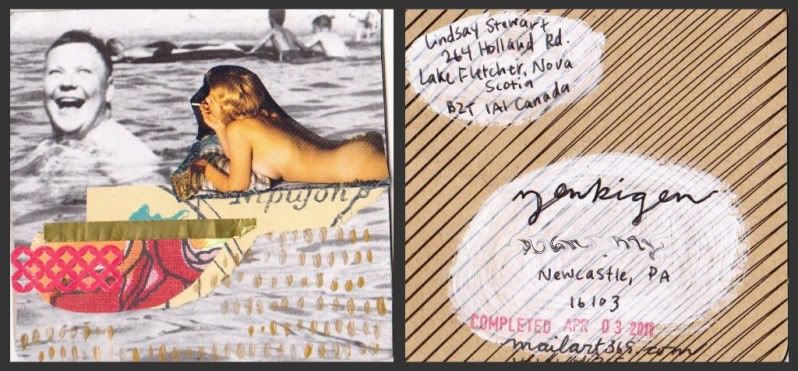 Lindsay Stewart
264 Holland Rd.
Lake Fletcher, Nova
Scotia
B2T 1A1 Canada
yenkigen
Newcastle, PA
16103
COMPLETED APR 03 2011
mailart365.com